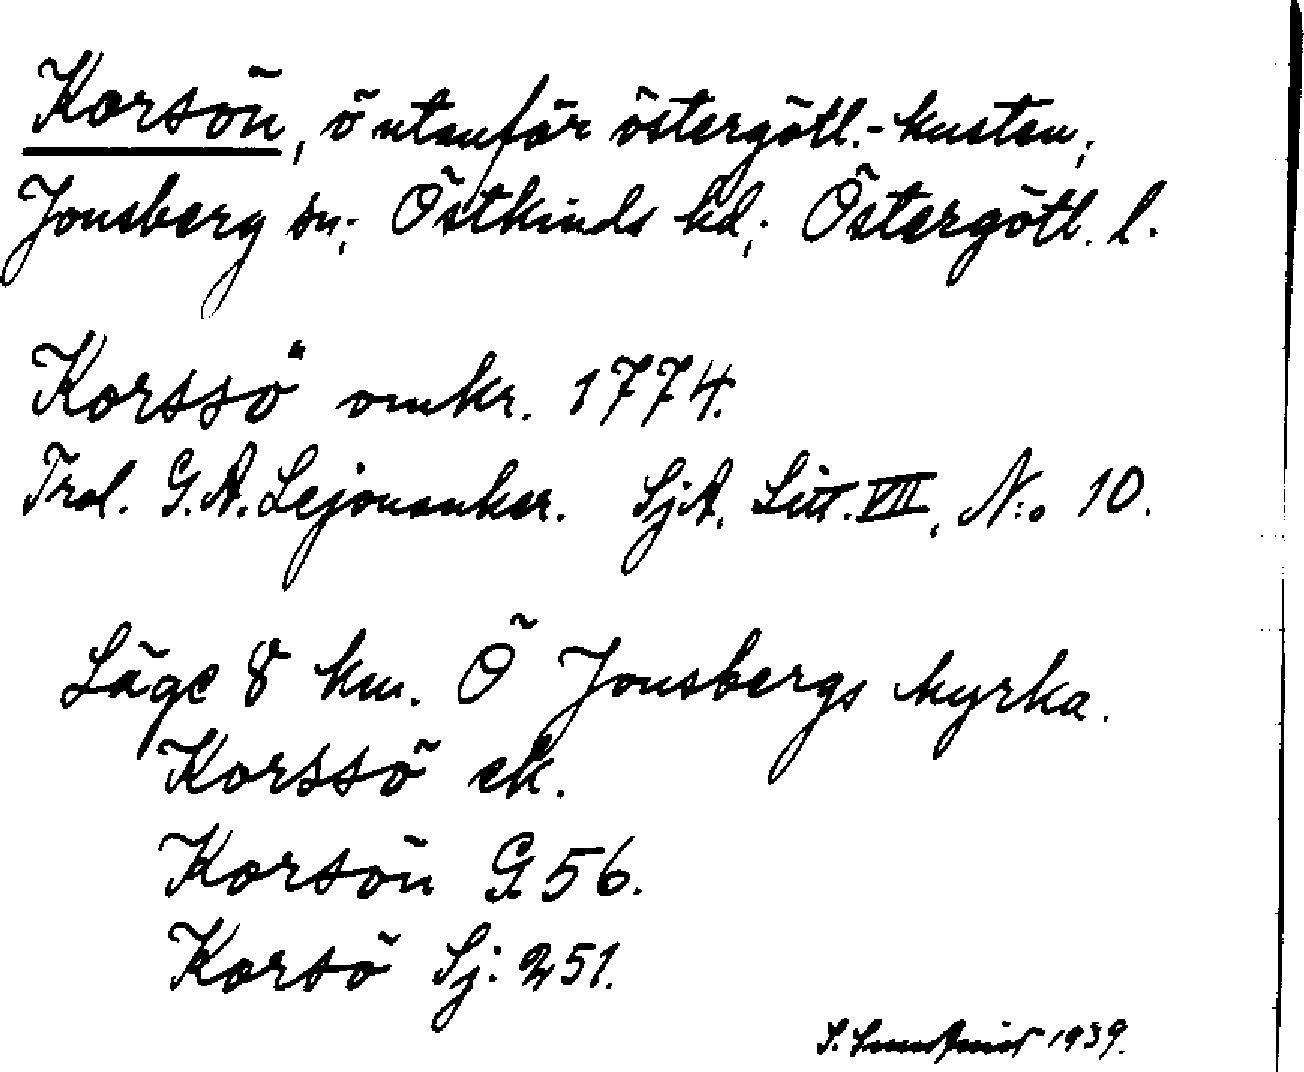 Korsön, ö utanför östergötl.-kusten,
Jonsberg sn; Östkinds hd; Östergötl. l.
Korssö omkr. 1774.
Trol. G.A. Lejonanker. SjA. Litt. VII, N:o 10.
Läge 8 km. Ö Jonsbergs kyrka.
Korssö ek.
Korsön G 56.
Korsö Sj: 251.
S. 1939.